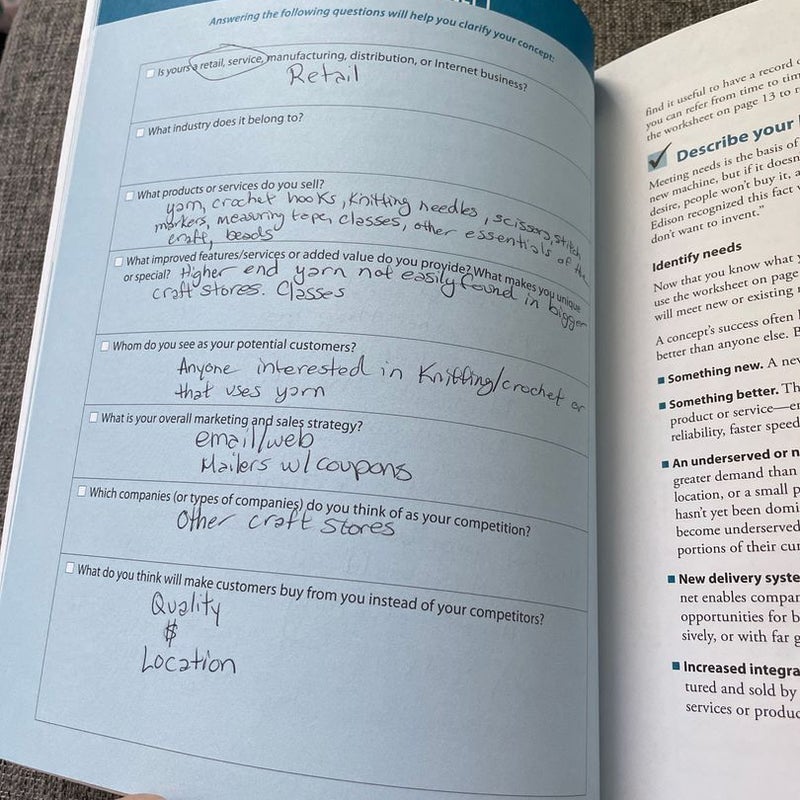 Answering the following questions will help you clarify your concept:
Is yours a retail, service, manufacturing, distribution, or Internet business?
Retail
What industry does it belong to?
What products or services do you sell?
yarn, crochet hooks, Knitting needles, scissors, stitch
markers, measuring tape, classes, other essentials of the
craft, beads
What improved features/services or added value do you provide? What makes you unique
or special? Higher end yarn not easily found in bigger
craft stores. Classes
Whom do you see as your potential customers?
Anyone interested in Knitting/crochet or
that uses yarn
What is your overall marketing and sales strategy?
email/web
Mailers w/ coupons
Which companies (or types of companies) do you think of as your competition?
Other craft stores
What do you think will make customers buy from you instead of your competitors?
Quality
$
Location
find it useful to have a record
you can refer from time to
the worksheet on page 13 to
Describe your
Meeting needs is the basis of
new machine, but if it
desire, people won't buy it,
Edison recognized this fact
don't want to invent."
Identify needs
Now that you know what
use the worksheet on page
will meet new or existing
A concept's success often
better than anyone else.
Something new. A
Something better.
product or service—
reliability, faster
An underserved or
greater demand than
location, or a small
hasn't yet been
become underserved
portions of their
New delivery
net enables
opportunities for
sively, or with far
Increased
tured and sold by
services or